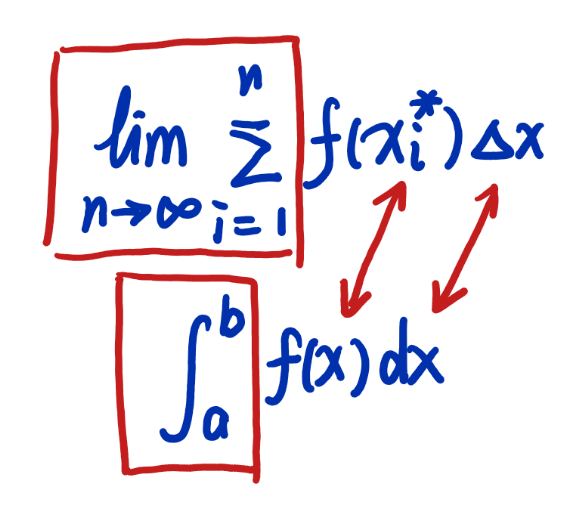 lim n→∞ n ∑ i=1 f(xᵢ*) Δx
∫ₐᵇ f(x) dx